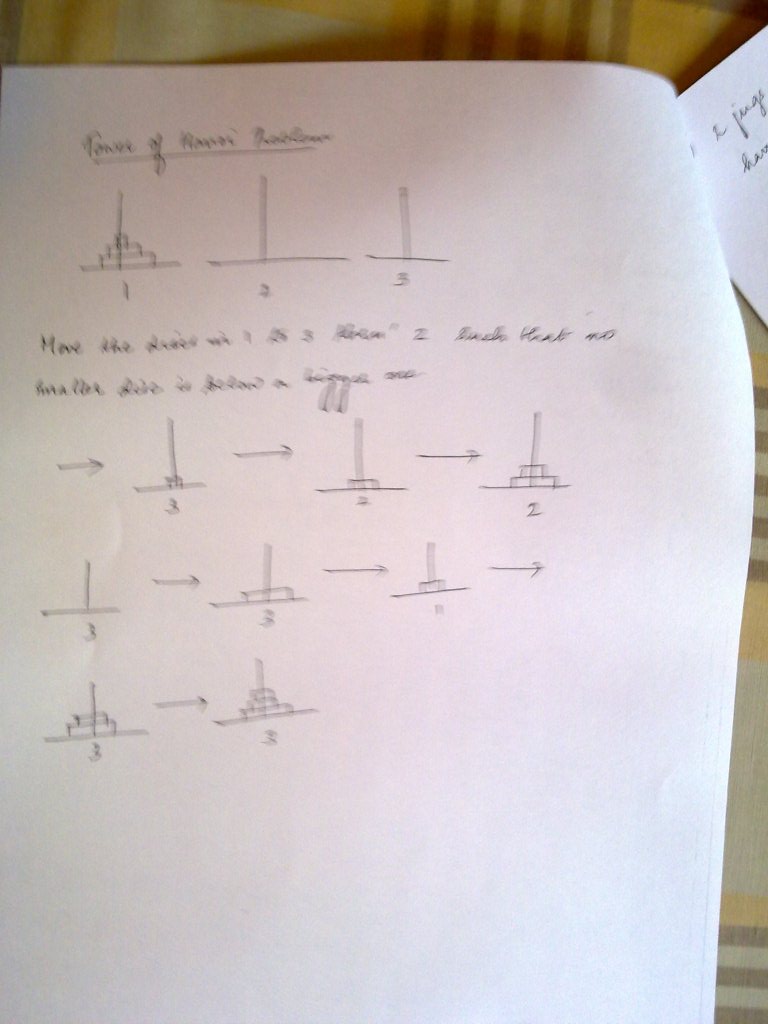 Tower of Hanoi Problem
1 2 3
Move the discs in 1 to 3 2 such that no
smaller disc is below a bigger one
3 2 2
3 3 1
3 3
2 jugs